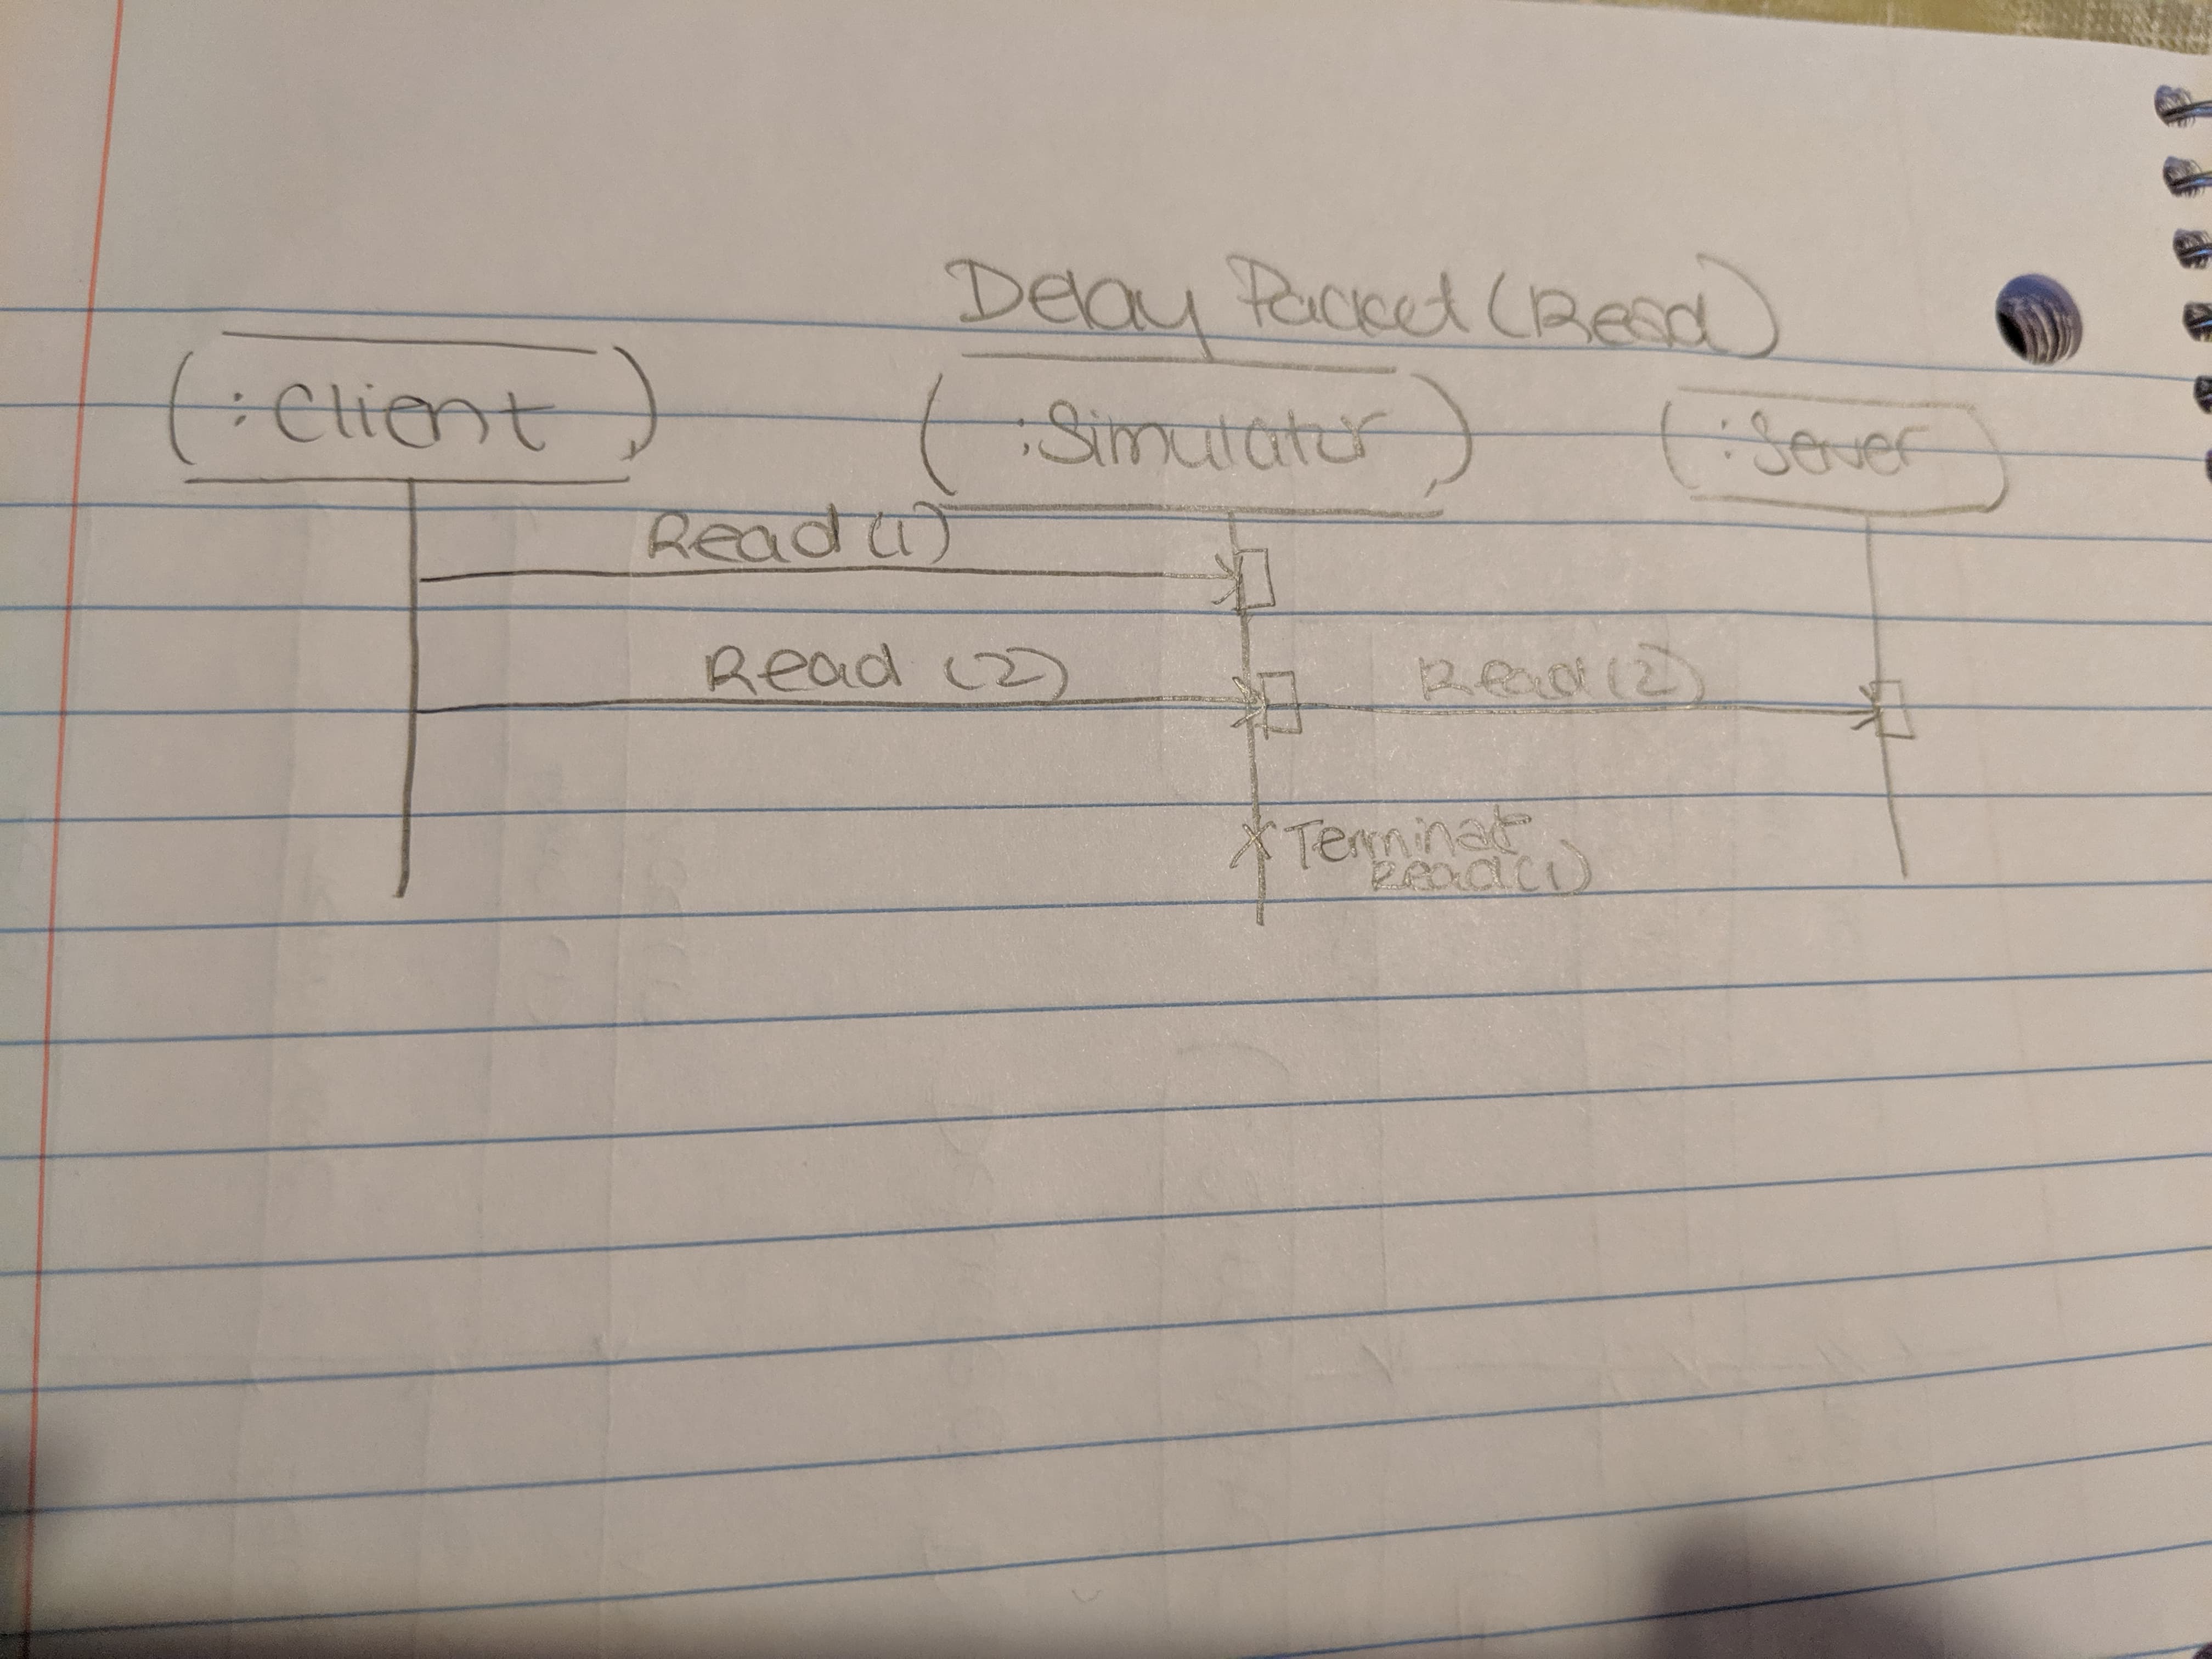 Delay Packet (Read)
:Client
:Simulator
:Server
Read (1)
Read (2)
Read (2)
Terminat
Read (1)